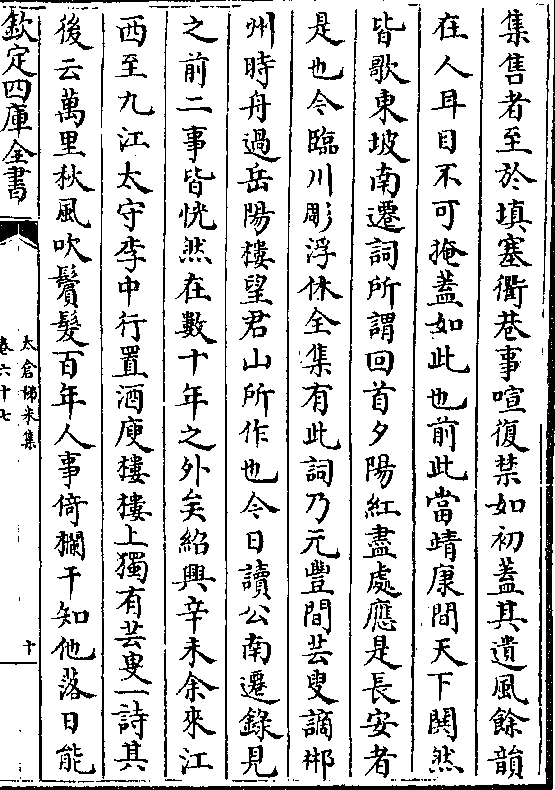 集售者至於填塞衢巷事喧復禁如初蓋其遺風餘韻
在人耳目不可掩蓋如此也前此當靖康間天下鬨然
皆歌東坡南遷詞所謂回首夕陽紅盡處應是長安者
是也今臨川彫浮休全集有此詞乃元豐間芸叟謫郴
州時舟過岳陽樓望君山所作也今日讀公南遷錄見
之前二事皆恍然在數十年之外矣紹興辛未余來江
西至九江太守李中行置酒庾樓樓上獨有芸叟一詩其
後云萬里秋風吹鬢髮百年人事倚欄干知他落日能
欽定四庫全書
太倉稊米集
卷六十七
十